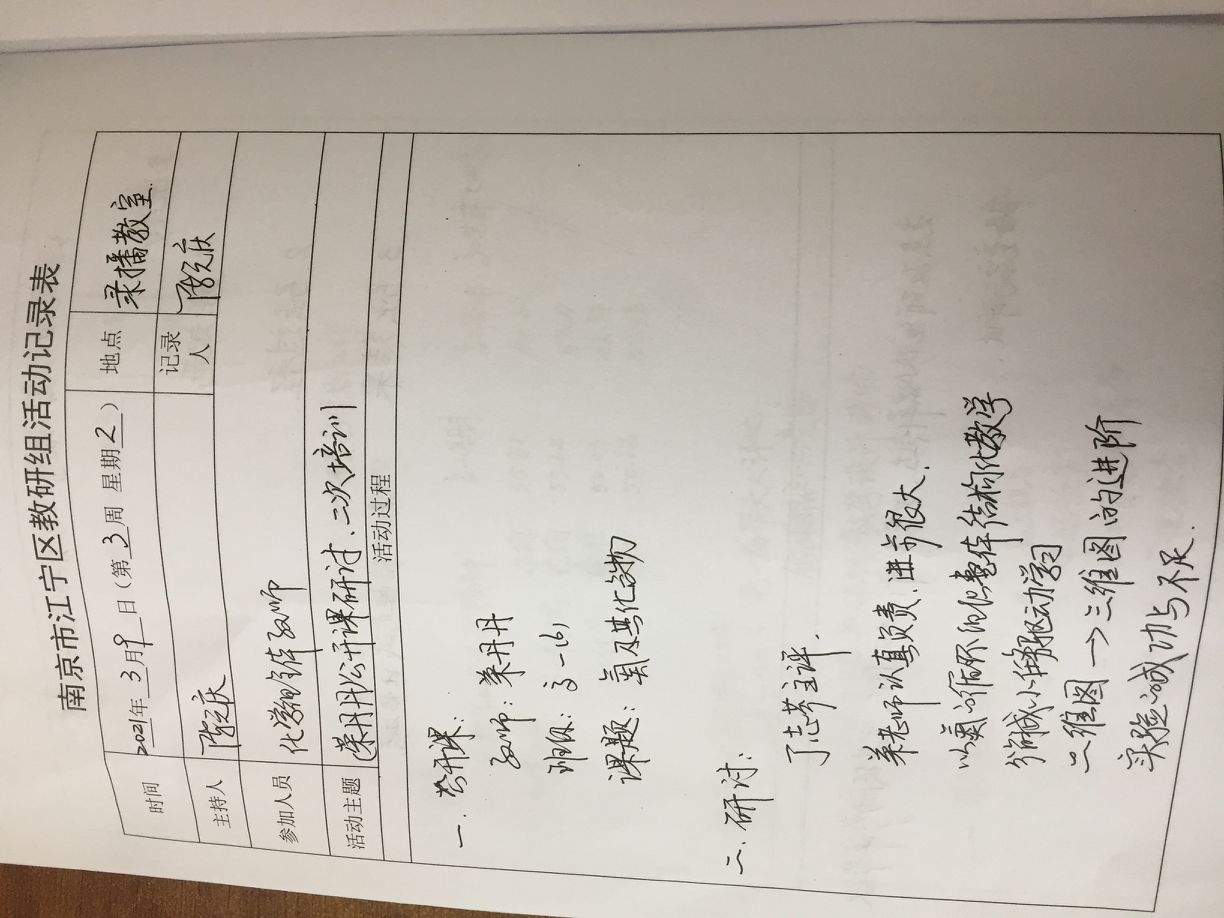 南京市江宁区教研组活动记录表
时间 2021年 3月9日（第3周 星期2） 地点 录播教室.
主持人 陈元庆 记录人 陈元庆
参加人员 化学组全体教师
活动主题 荣丹丹公开课研讨、二次培训
活动过程
一. 公开课:
教师: 荣丹丹
班级: 高一(6)
课题: 氮及其化合物
二. 研讨:
丁志芳主评.
荣老师认真负责.进步很大.
以氮的循环组织整体结构化教学
分解成小任务驱动学习
二维图→三维图的进阶
实验的成功与不足.